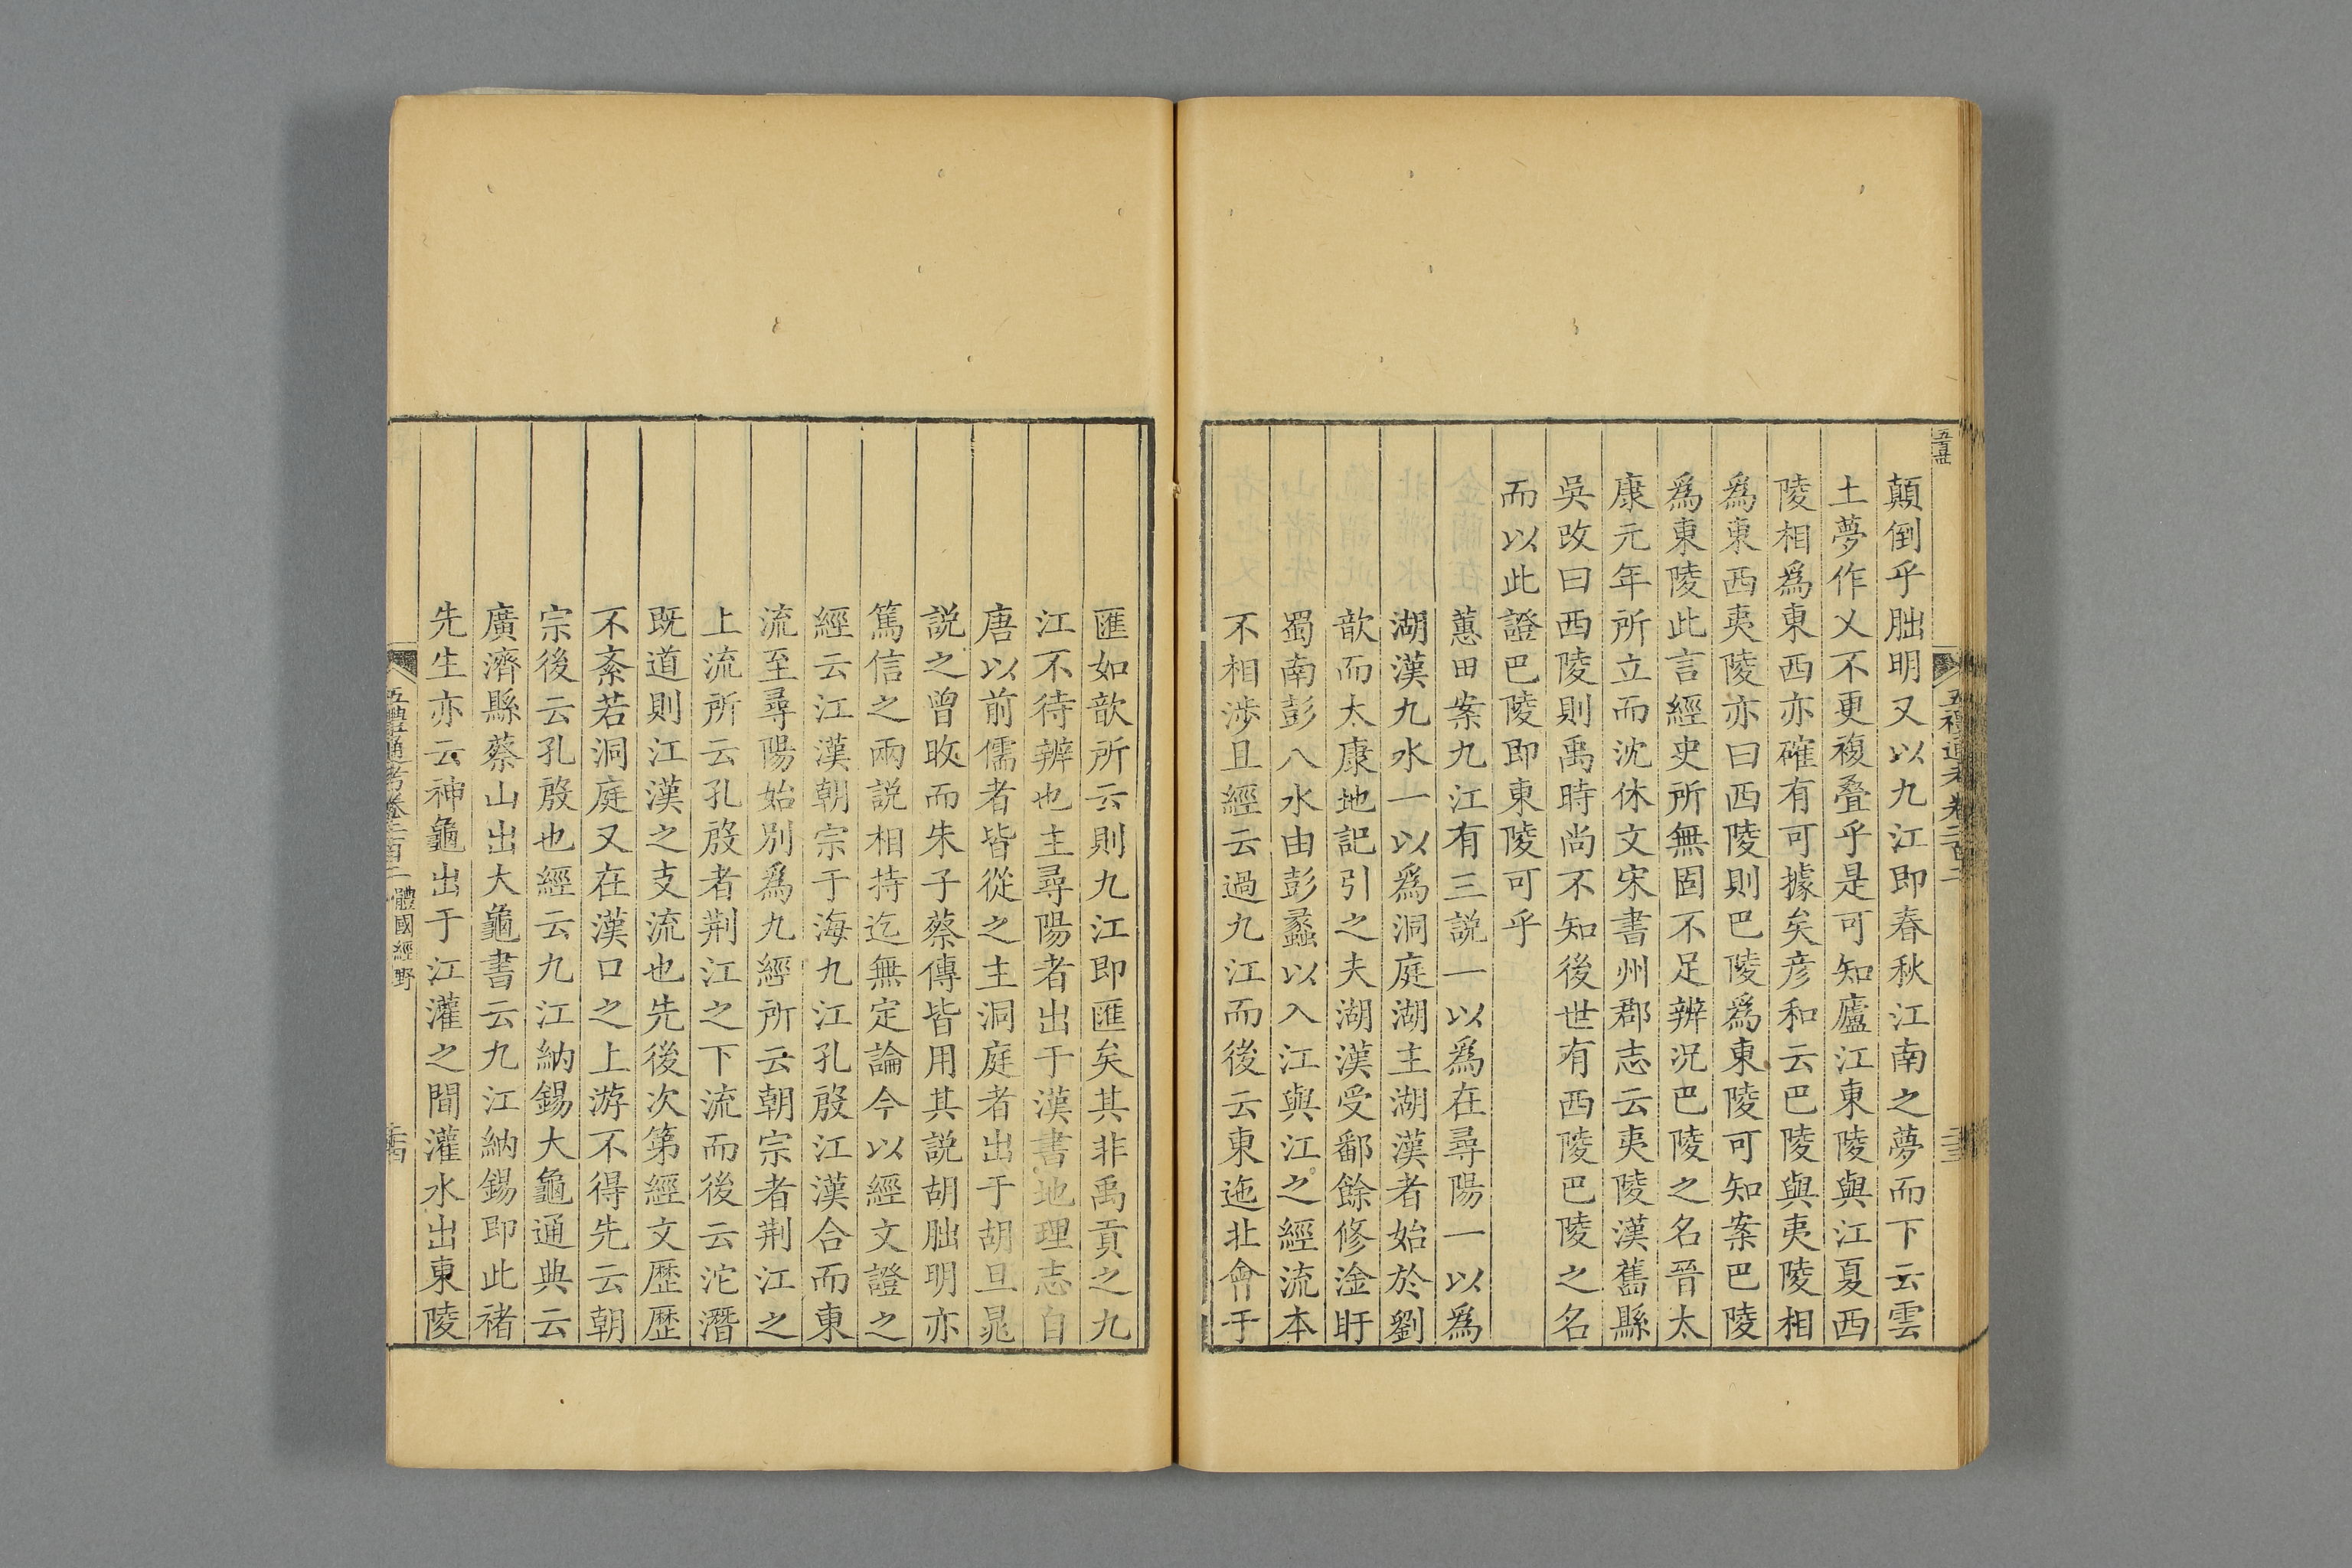 顛倒乎朏明又以九江即春秋江南之夢而下云雲
土夢作乂不更複叠乎是可知廬江東陵與江夏西
陵相爲東西亦確有可據矣彦和云巴陵與夷陵相
爲東西夷陵亦曰西陵則巴陵爲東陵可知案巴陵
爲東陵此言經史所無固不足辨况巴陵之名晉太
康元年所立而沈休文宋書州郡志云夷陵漢舊縣
吳改曰西陵則禹時尚不知後世有西陵巴陵之名
而以此證巴陵即東陵可乎
蕙田案九江有三説一以爲在尋陽一以爲
湖漢九水一以爲洞庭湖主湖漢者始於劉
歆而太康地記引之夫湖漢受鄱餘修淦盱
蜀南彭八水由彭蠡以入江與江之經流本
不相涉且經云過九江而後云東迤北會于
匯如歆所云則九江即匯矣其非禹貢之九
江不待辨也主尋陽者出于漢書地理志自
唐以前儒者皆從之主洞庭者出于胡旦晁
説之曾旼而朱子蔡傳皆用其説胡朏明亦
篤信之兩説相持迄無定論今以經文證之
經云江漢朝宗于海九江孔殷江漢合而東
流至尋陽始別爲九經所云朝宗者荆江之
上流所云孔殷者荆江之下流而後云沱潛
既道則江漢之支流也先後次第經文歴歴
不紊若洞庭又在漢口之上游不得先云朝
宗後云孔殷也經云九江納錫大龜通典云
廣濟縣蔡山出大龜書云九江納錫即此褚
先生亦云神龜出于江灌之間灌水出東陵
五禮通考卷二百二 體國經野